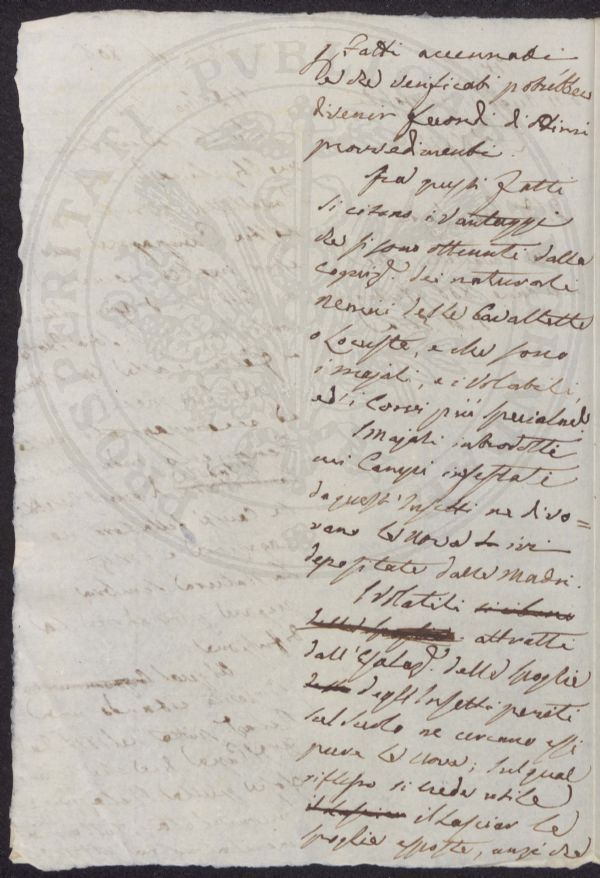 i Fatti accennati
e che verificati potrebbero
divenir fecondi d'ottimi
provvedimenti.
Fra questi Fatti
si citano i vantaggi
che si sono ottenuti dalla
dei naturali
nemici delle Cavallette
o Locuste, e che sono
i majali, e i Volatili,
ed i Corvi più specialme.
I Majali introdotti
nei Campi infestati
da quest'Insetti ne divo=
rano le uova ivi
depositate dalle Madri.
I Volatili
attratti
dall'Esalaz. delle spoglie
degl'Insetti periti
sul suolo ne cercano essi
pure le uova; sul qual
riflesso si crede utile
il lasciar le
spoglie esposte, anzi che
PROSPERITATI PUBLICAE